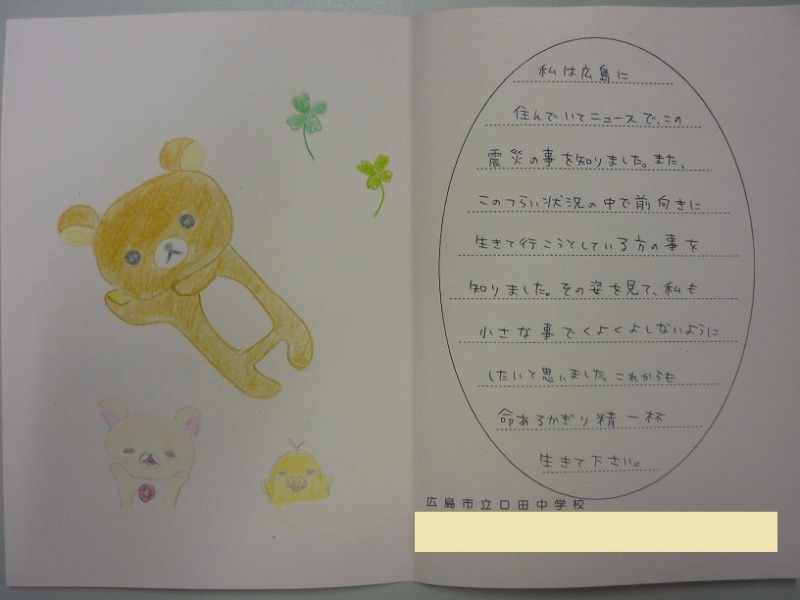 私は広島に
住んでいてニュースで、この
震災の事を知りました。また、
このつらい状況の中で前向きに
生きて行こうとしている方の事を
知りました。その姿を見て、私も
小さな事でくよくよしないように
したいと思いました。これからも
命あるかぎり精一杯
生きて下さい。
広島市立口田中学校